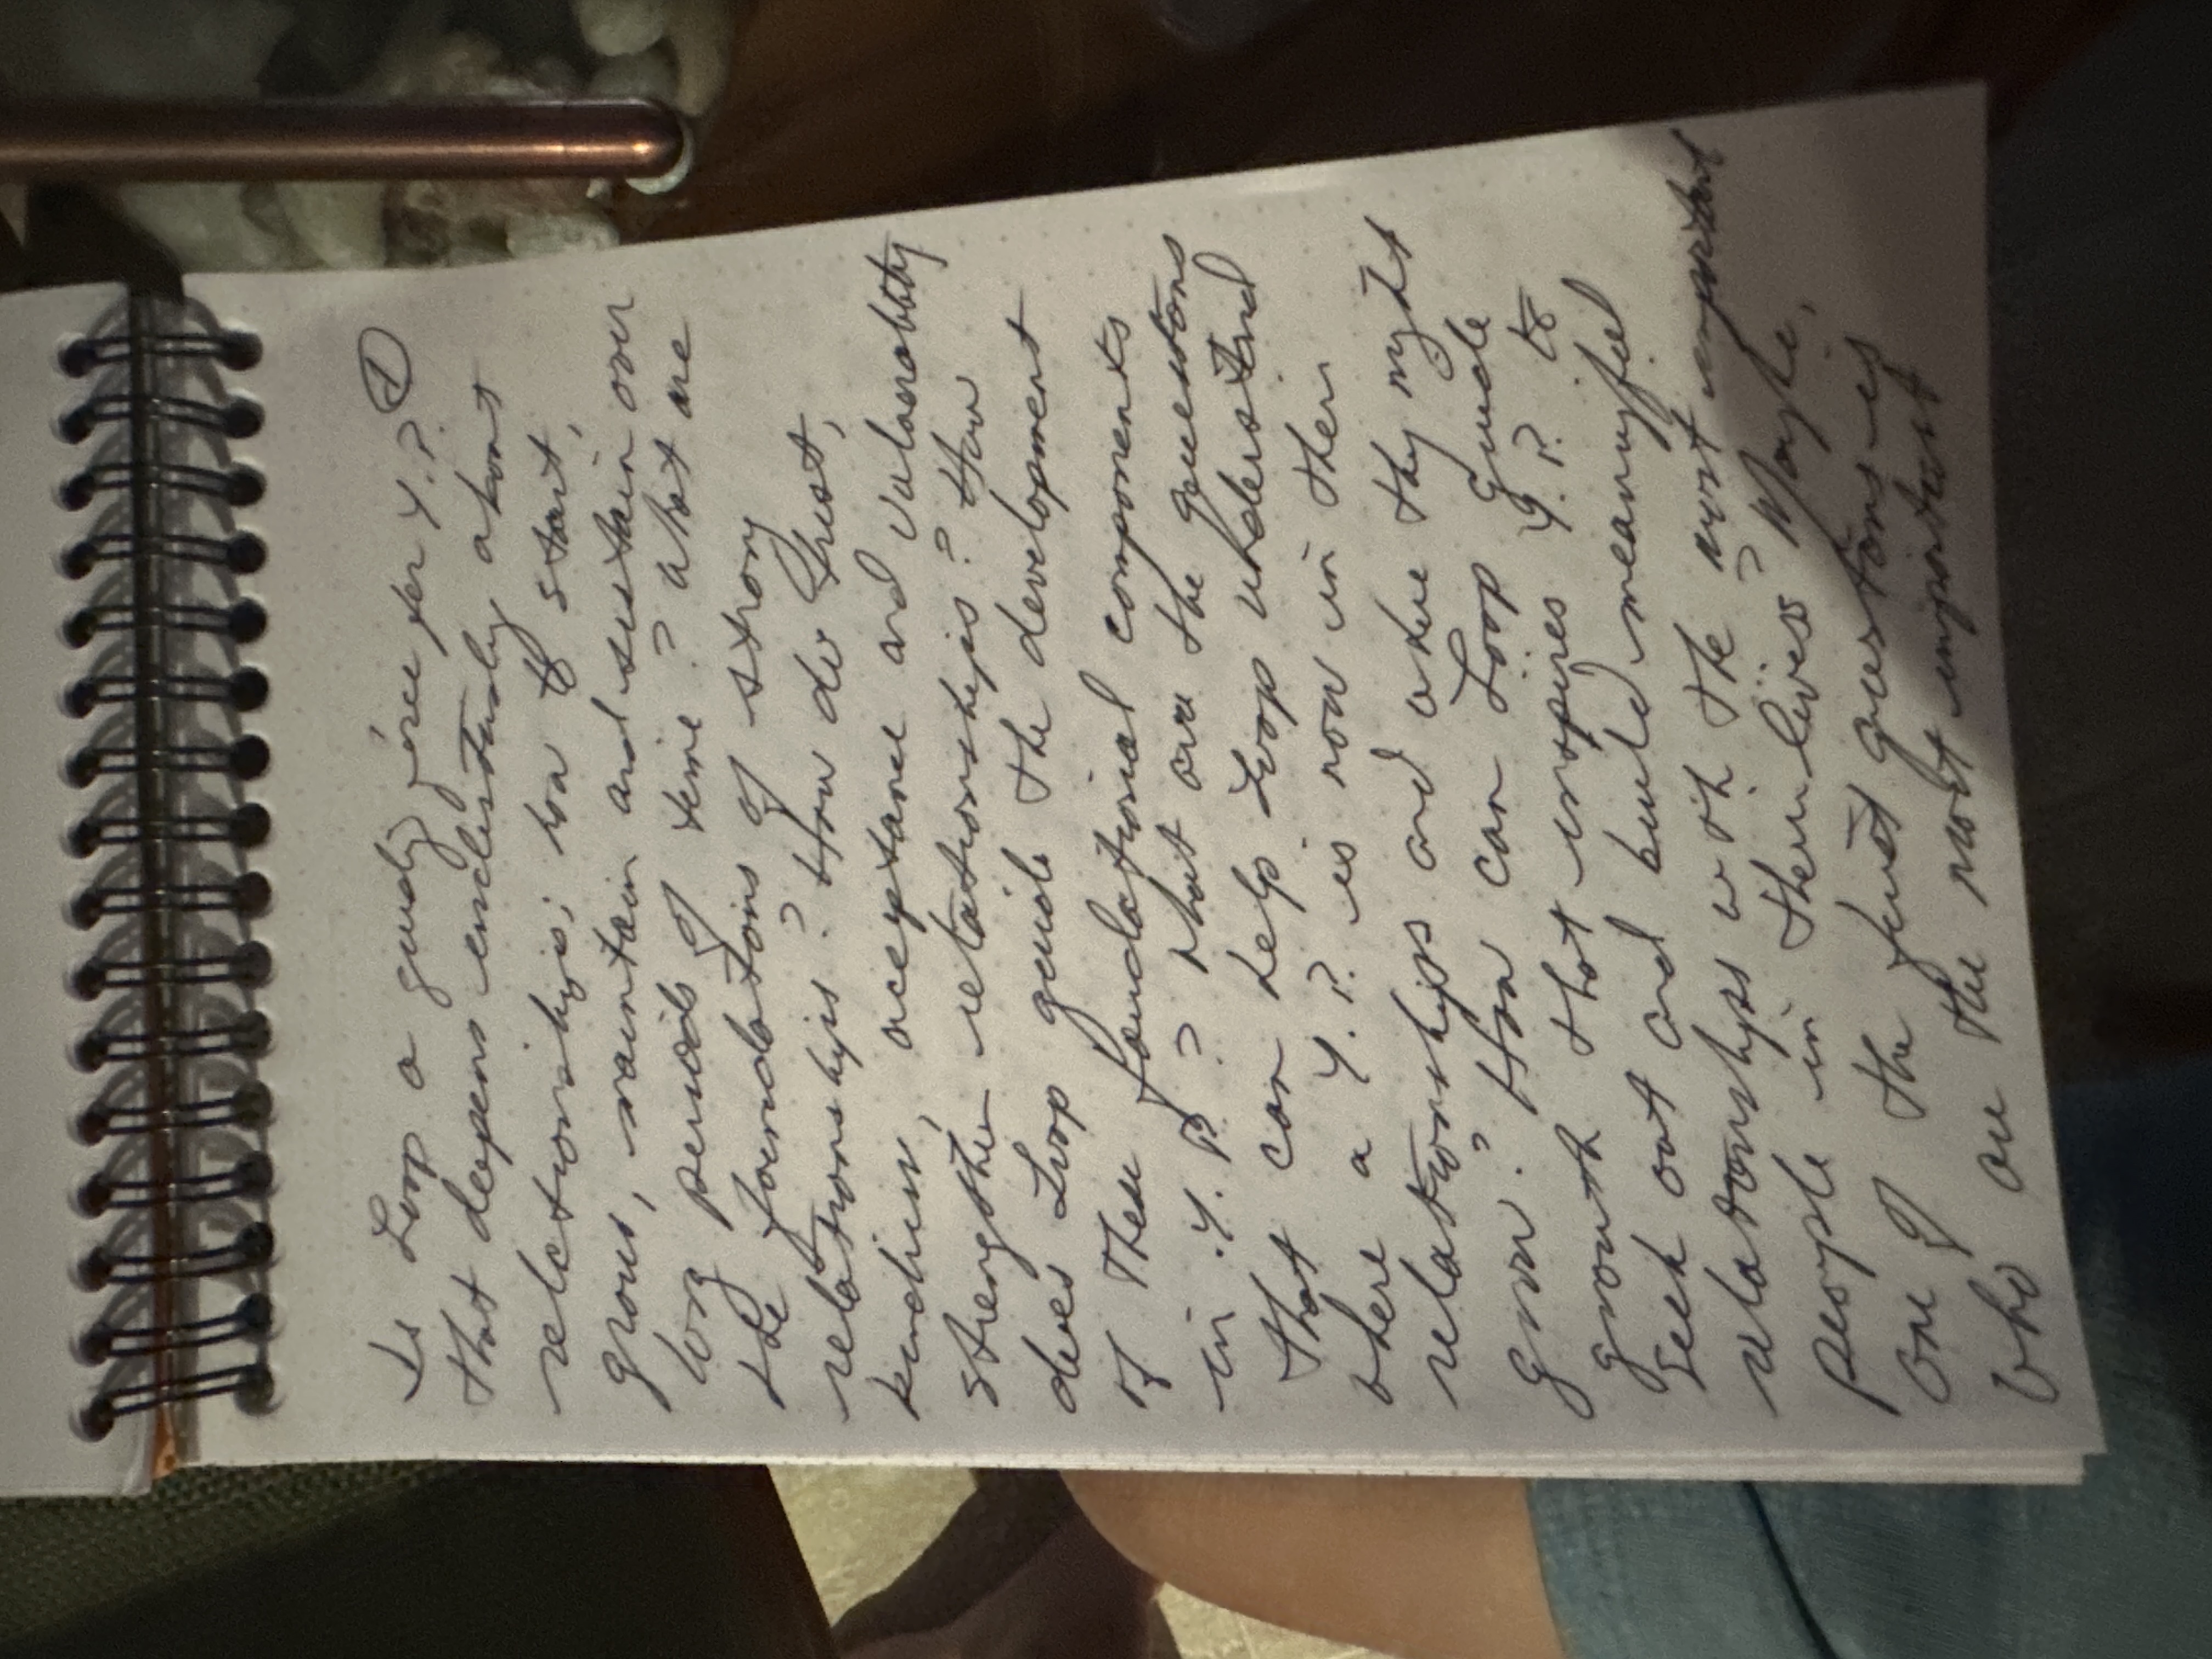 Is Loop a guiding force for Y.P. ①
that deepens understanding about
relationships; how to start,
grow, maintain and sustain over
long periods of time? What are
the foundations of strong
relationships? How do trust,
kindness, acceptance and vulnerability
strengthen relationships? How
does Loop guide the development
of these foundational components
in Y.P.? What are the questions
that can help Loop understand
where a Y.P. is now in their
relationships and where they might
grow? How can Loop guide
growth that inspires Y.P. to
seek out and build meaningful
relationships with the most important
people in their lives? Maybe,
one of the first questions is
who are the most important